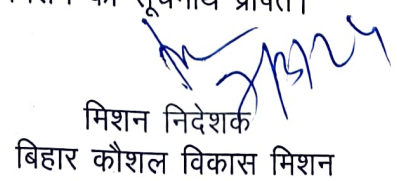 की सूचनार्थ प्रेषित।
मिशन निदेशक
बिहार कौशल विकास मिशन